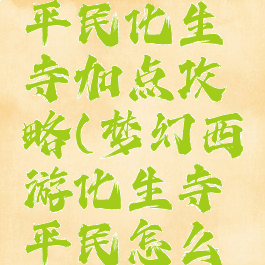 平民化生
寺加点攻
略(梦幻西
游化生寺
平民怎么